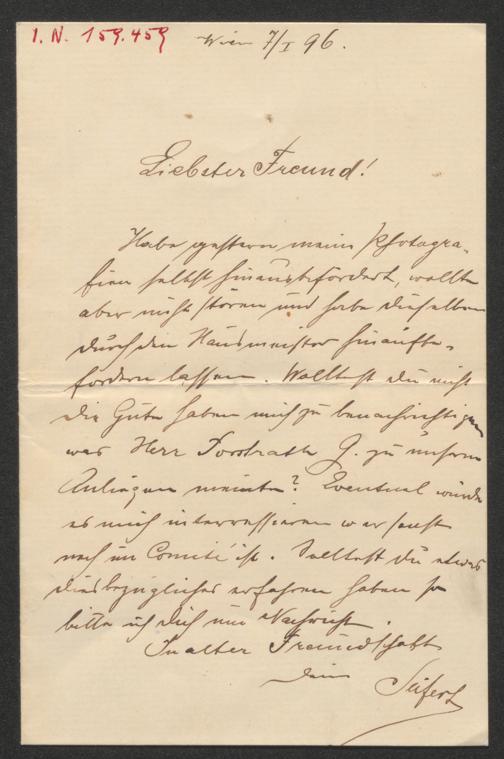 I. N. 159.459
Wien 7/I 96.
Liebster Freund!
Habe gestern meine Photogra-
fien selbst hinausbefördert, wollte
aber nicht stören und habe dieselben
durch den Hausmeister hinaufbe-
fördern lassen. Wolltest du nicht
die Güte haben mich zu benachrichtigen
was Herr Forstrath G. zu unserem
Anliegen meinte? Eventuel würde
es mich interressieren wer sonst
noch im Comité ist. Solltest du etwas
diesbezügliches erfahren haben so
bitte ich dich um Nachricht.
In alter Freundschaft
dein Seifert